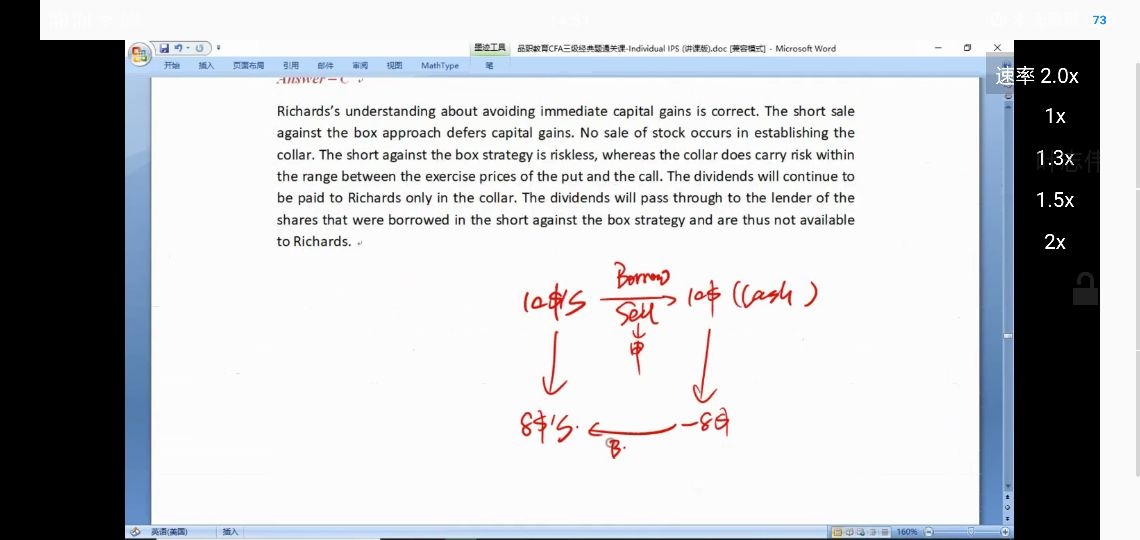 73
墨迹工具
品职教育CFA三级经典题通关课-Individual IPS (讲课版).doc [兼容模式] - Microsoft Word
开始 插入 页面布局 引用 邮件 审阅 视图 MathType 笔
速率 2.0x
1x
1.3x
1.5x
2x
Answer = C
Richards's understanding about avoiding immediate capital gains is correct. The short sale
against the box approach defers capital gains. No sale of stock occurs in establishing the
collar. The short against the box strategy is riskless, whereas the collar does carry risk within
the range between the exercise prices of the put and the call. The dividends will continue to
be paid to Richards only in the collar. The dividends will pass through to the lender of the
shares that were borrowed in the short against the box strategy and are thus not available
to Richards.
Borrow
10$'S 10$ (Cash)
Sell
甲
8$'S. -8$
B.
英语(美国) 插入 160%